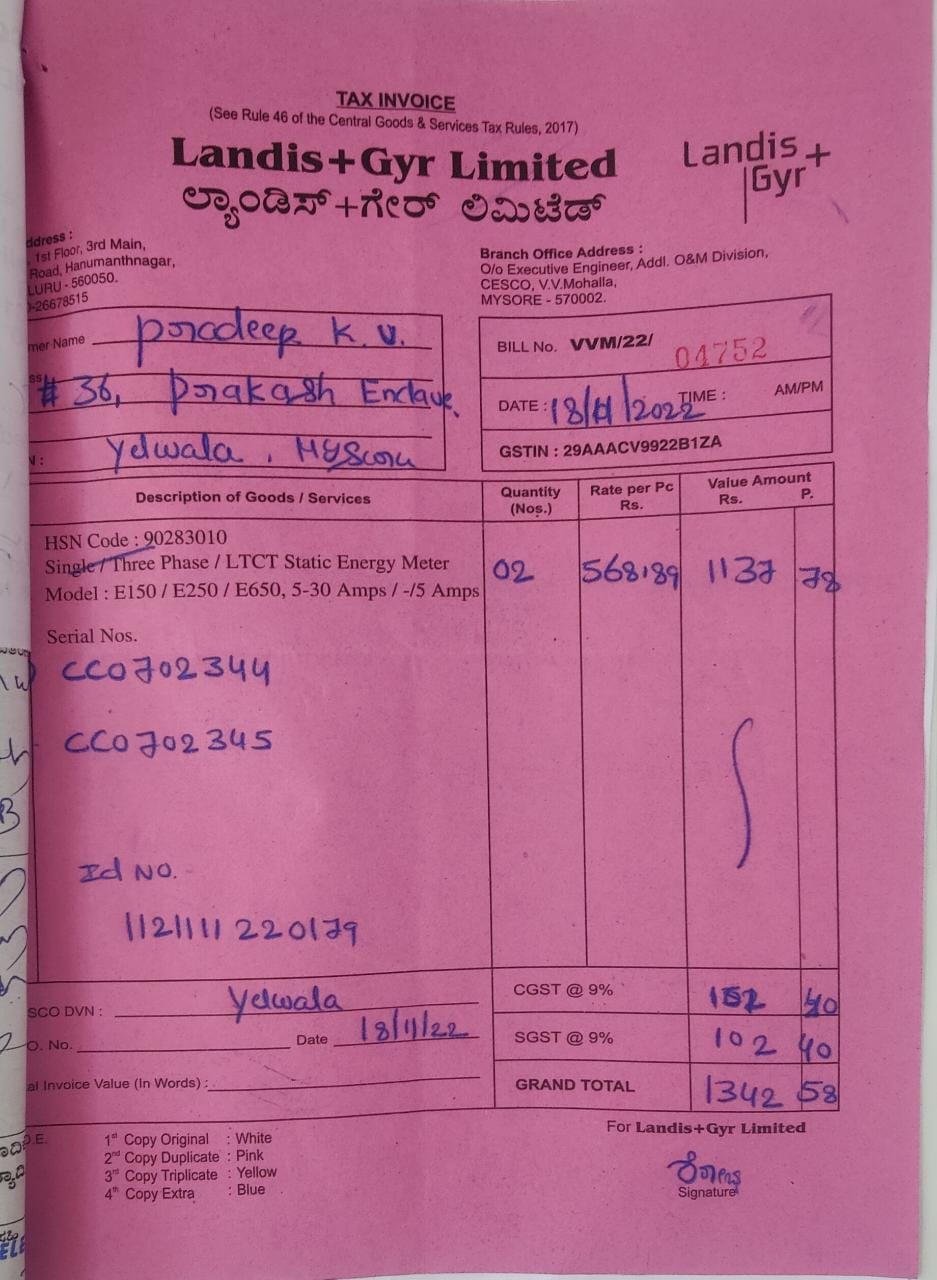 TAX INVOICE
(See Rule 46 of the Central Goods & Services Tax Rules, 2017)
Landis+Gyr Limited
ಲ್ಯಾಂಡಿಸ್+ಗೇರ್ ಲಿಮಿಟೆಡ್
Landis+
Gyr
ddress :
1st Floor, 3rd Main,
Road, Hanumanthnagar,
LURU - 560050.
-26678515
Branch Office Address :
O/o Executive Engineer, Addl. O&M Division,
CESCO, V.V.Mohalla,
MYSORE - 570002.
mer Name Pradeep K. V.
ss # 36, Prakash Enclave,
N : Yelwala, Mysore
BILL No. VVM/22/ 04752
DATE : 18/11/2022 TIME : AM/PM
GSTIN : 29AAACV9922B1ZA
Description of Goods / Services Quantity (Nos.) Rate per Pc Rs. Value Amount Rs. P.
HSN Code : 90283010
Single / Three Phase / LTCT Static Energy Meter 02 568.89 1137 78
Model : E150 / E250 / E650, 5-30 Amps / -/5 Amps
Serial Nos.
CC0702344
CC0702345
Id No.
1121111220179
SCO DVN : Yelwala
O. No. Date 18/11/22
al Invoice Value (In Words) :
CGST @ 9% 102 40
SGST @ 9% 102 40
GRAND TOTAL 1342 58
For Landis+Gyr Limited
Signature
D.E.
1st Copy Original : White
2nd Copy Duplicate : Pink
3rd Copy Triplicate : Yellow
4th Copy Extra : Blue